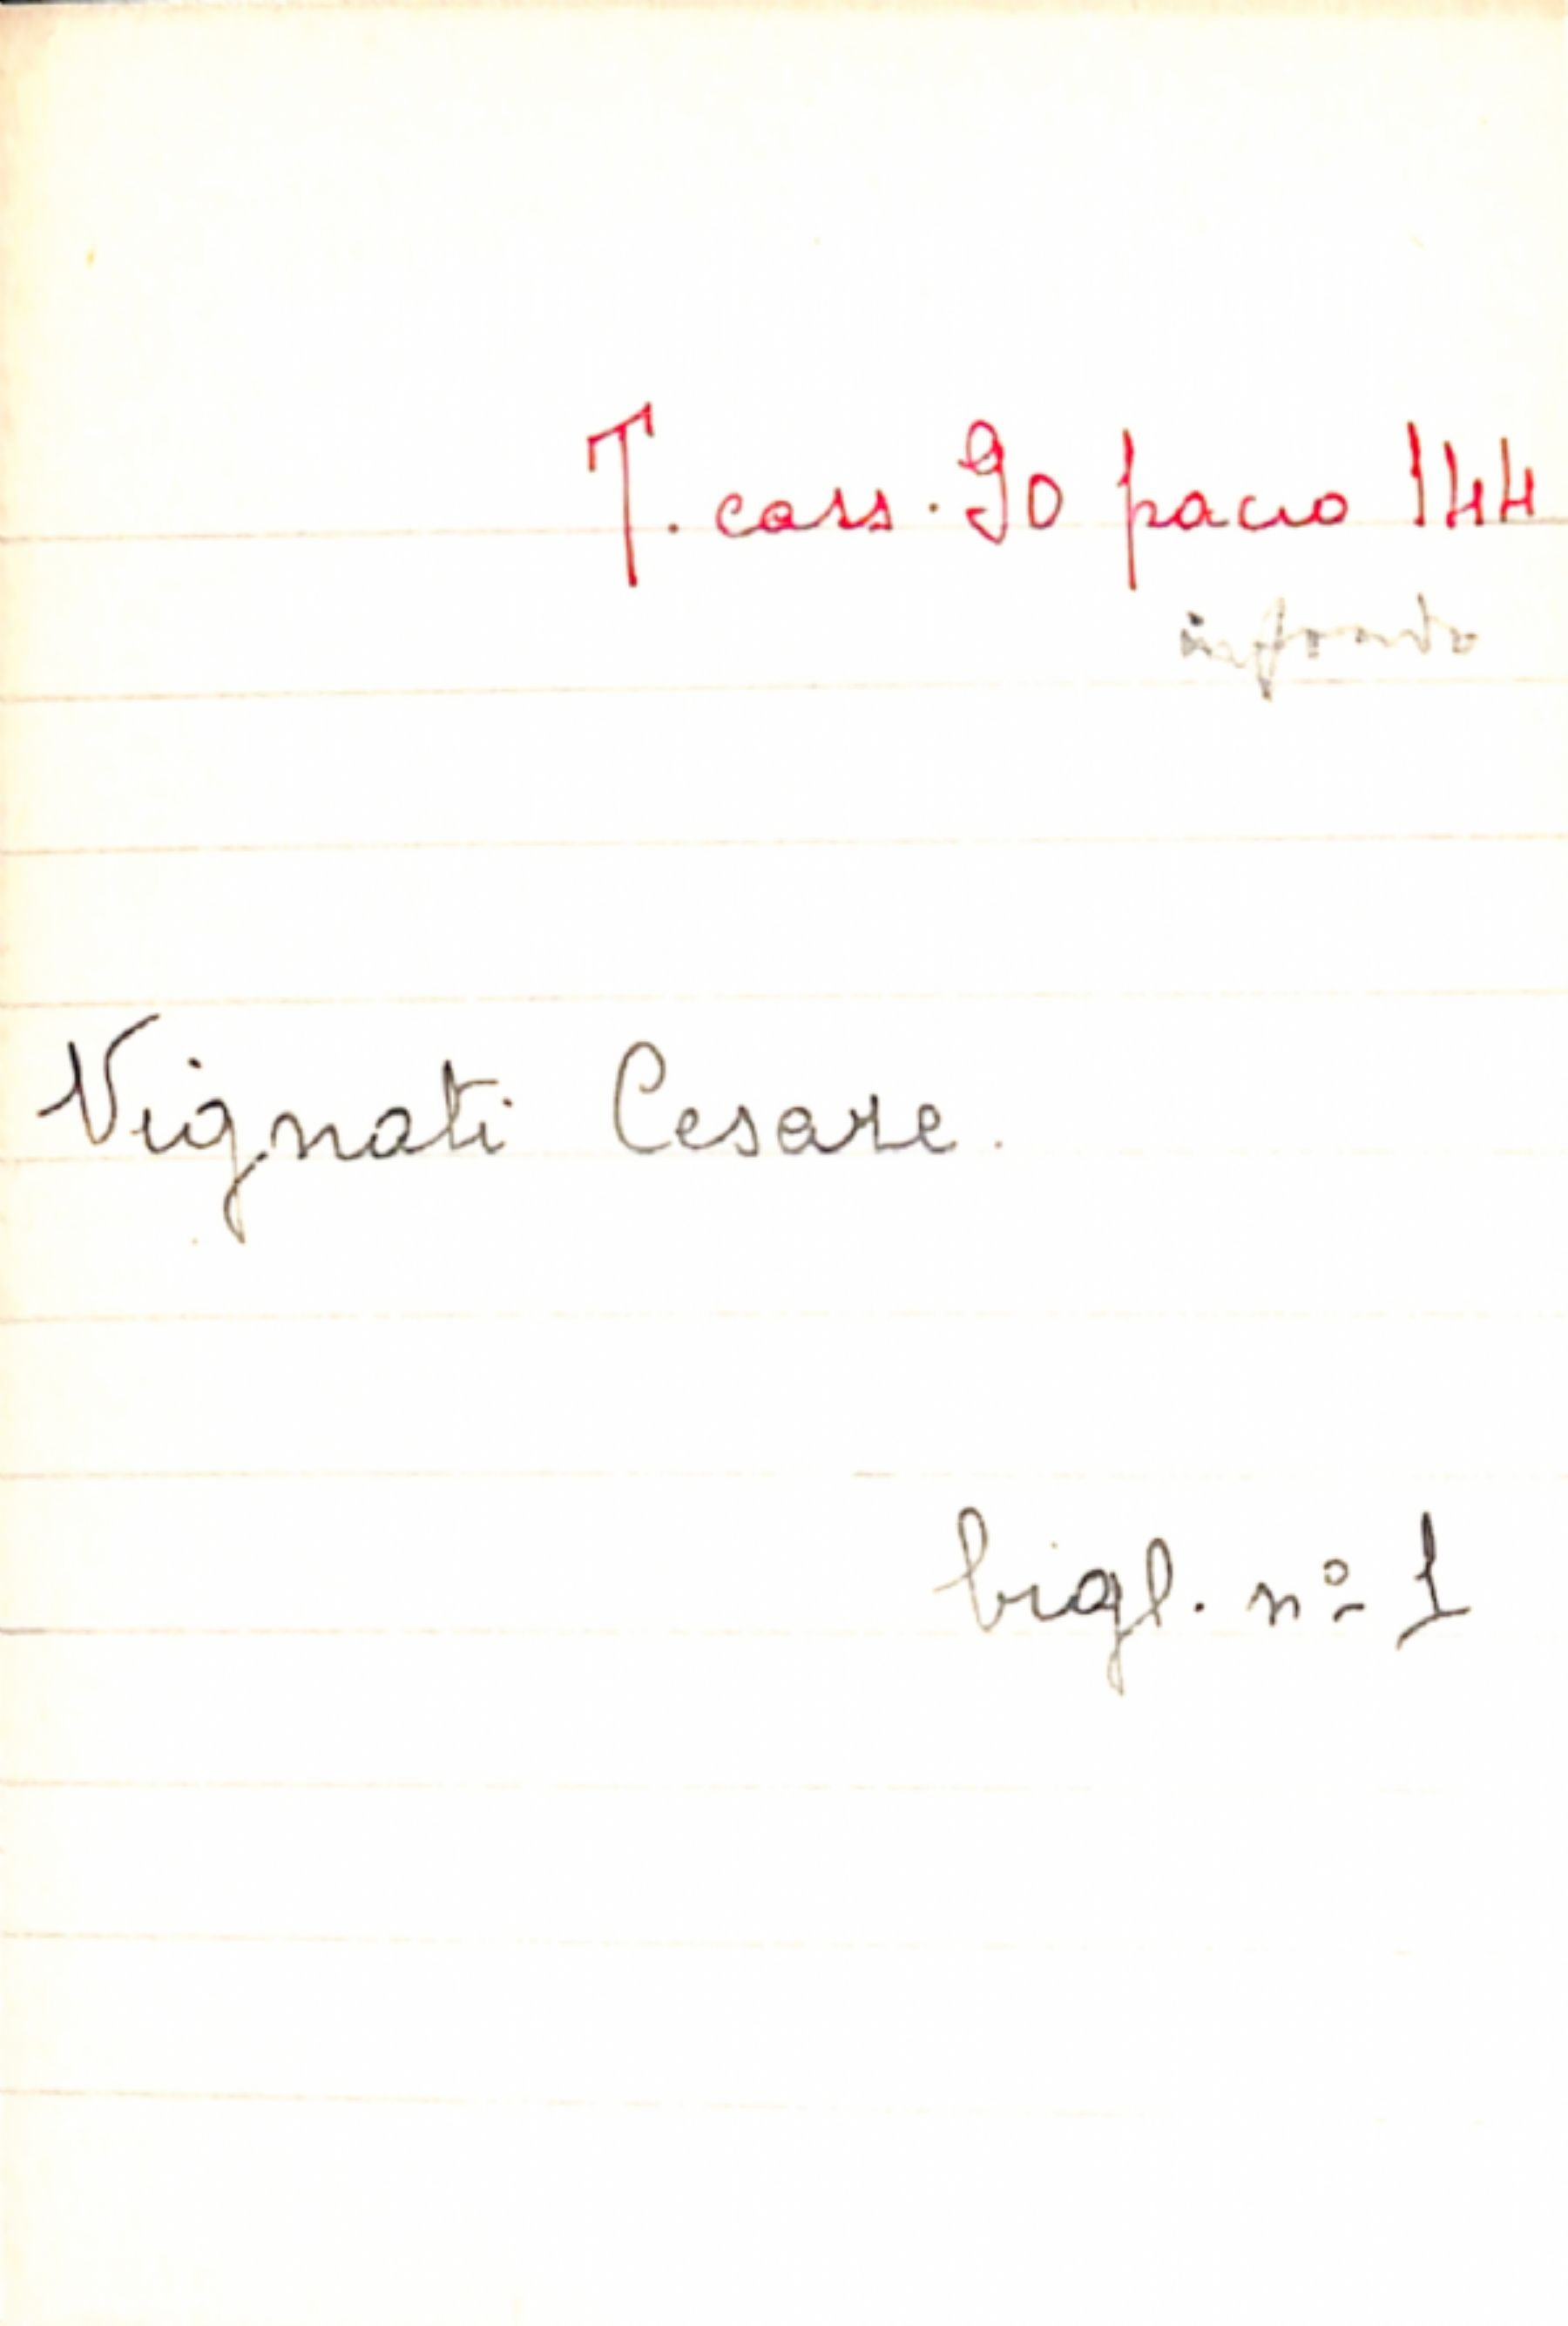 T. cass. 90 pacco 144
in fondo
Vignati Cesare.
bigl. nº 1